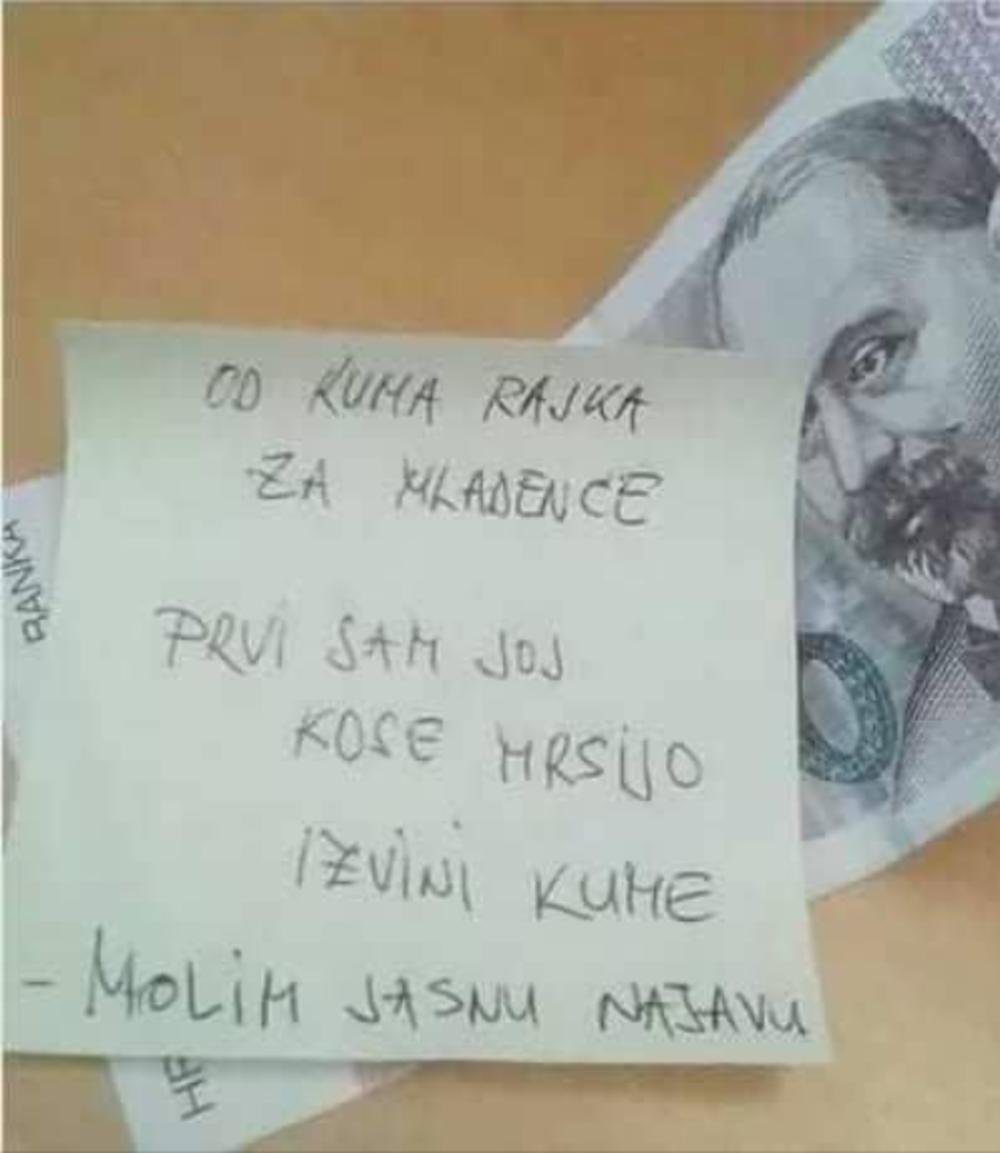 OD KUMA RAJKA
ZA MLADENCE
PRVI SAM JOJ
KOSE MRSIJO
IZVINI KUME
- MOLIM JASNU NAJAVU
BANKA
HR